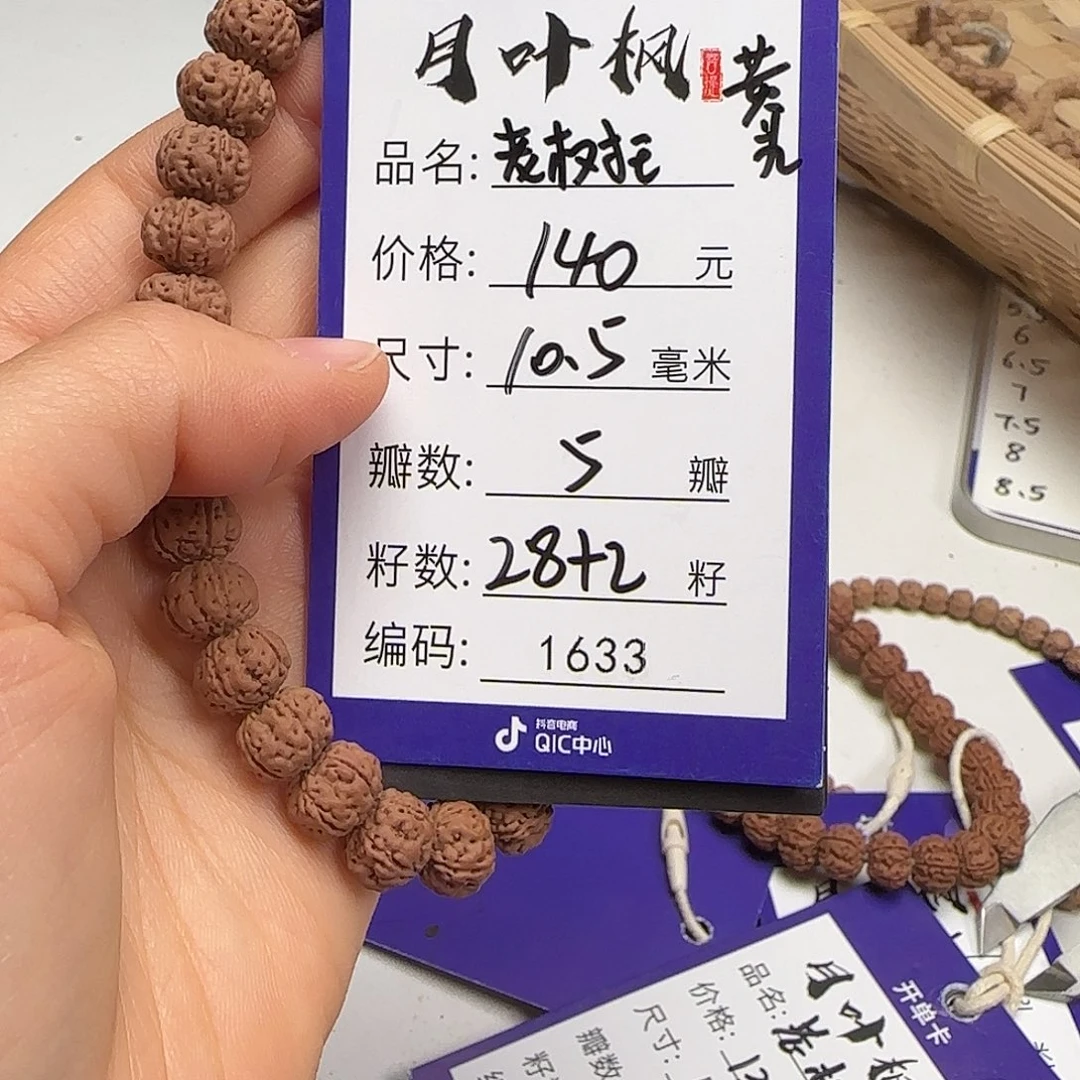 月叶枫
菩提
黄乳
品名: 老树桩
价格: 140 元
尺寸: 10.5 毫米
瓣数: 5 瓣
籽数: 28+2 籽
编码: 1633
抖音电商
QIC中心
6
6.5
7
7.5
8
8.5
开单卡
月叶
品名:
价格: 12
尺寸:
瓣数
籽